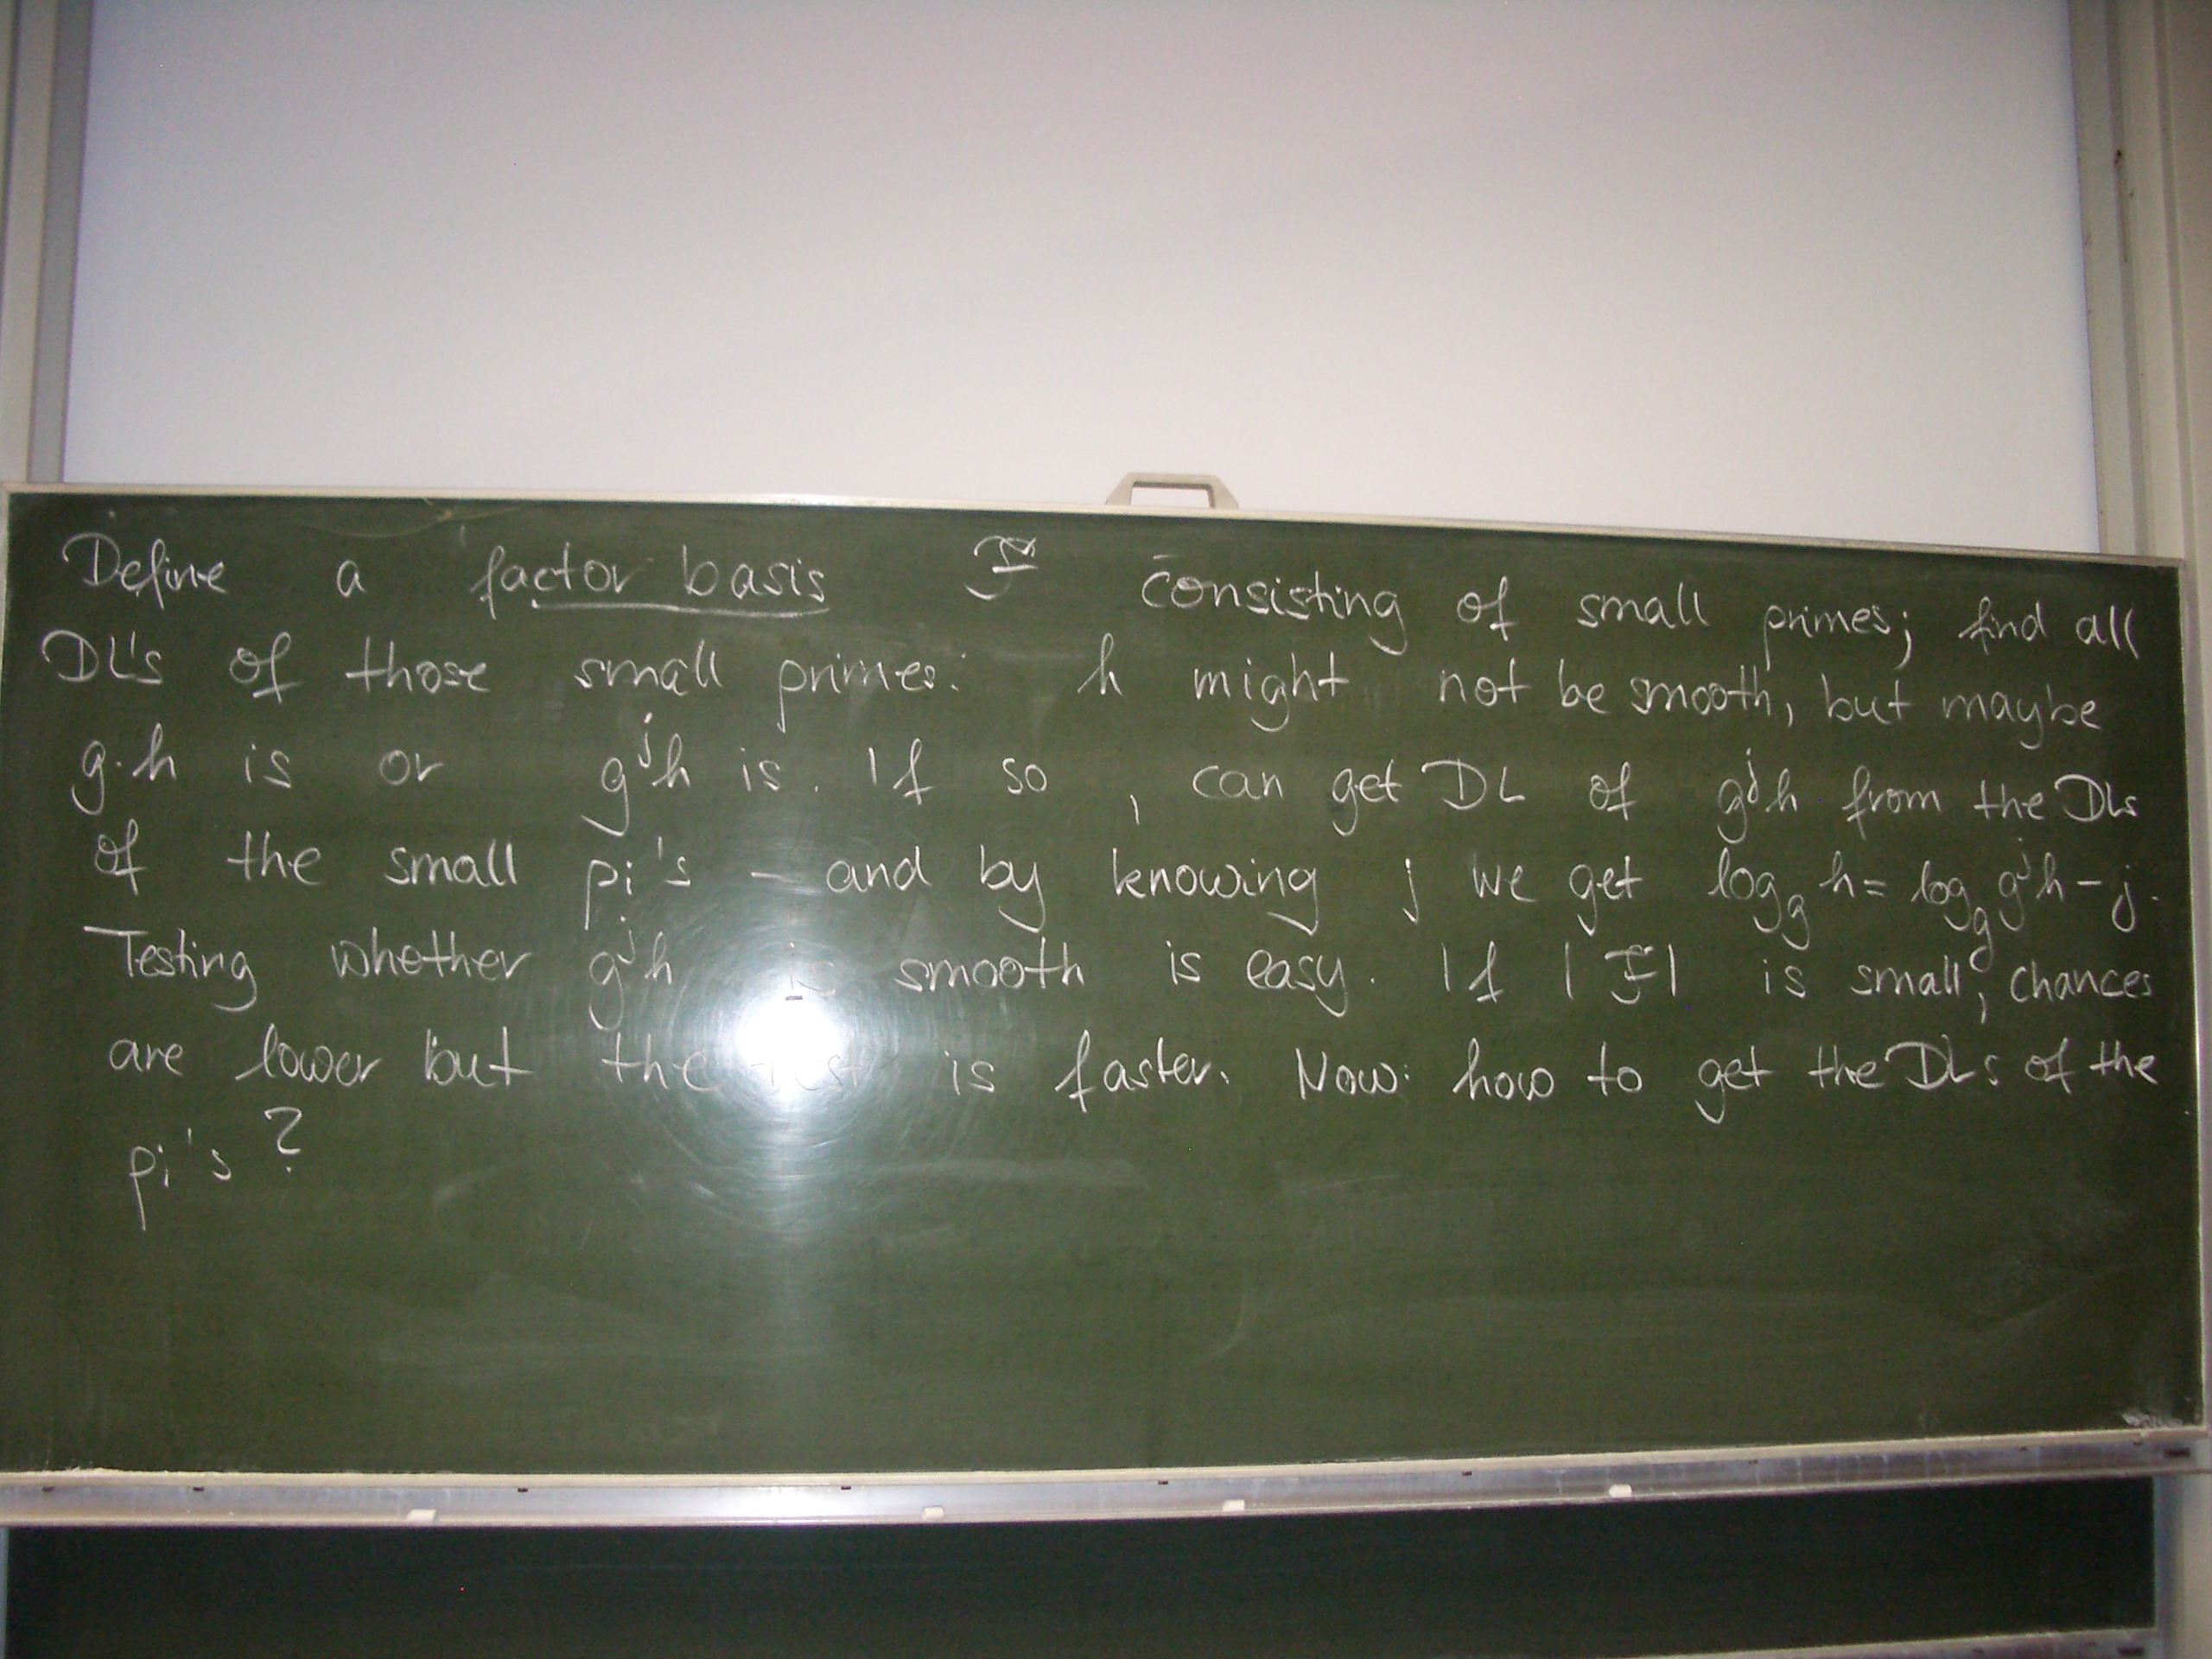 Define a factor basis ℱ consisting of small primes; find all
DL's of those small primes: h might not be smooth, but maybe
g·h is or gʲh is. If so, can get DL of gʲh from the DLs
of the small pi's – and by knowing j we get log_g h = log_g gʲh – j.
Testing whether gʲh is smooth is easy. If |ℱ| is small, chances
are lower but the test is faster. Now: how to get the DLs of the
pi's?